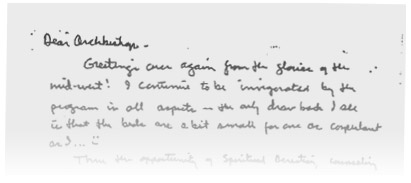 Dear Archbishop -
Greetings once again from the glories of the
mid-west! I continue to be invigorated by the
program in all aspects - the only draw back I see
is that the beds are a bit small for one as corpulent
as I... :)
Then the opportunity of Spiritual Direction, counseling